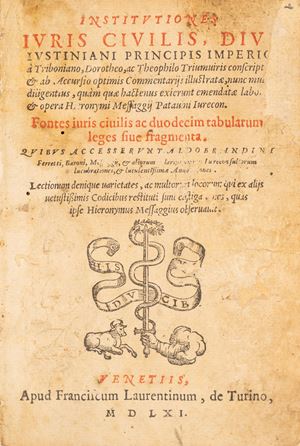 INSTITVTIONES
IVRIS CIVILIS, DIVI
IVSTINIANI PRINCIPIS IMPERIO
à Triboniano, Dorotheo, ac Theophilo Triumuiris conscript
& ab Accursio optimis Commentarijs illustratæ, nunc
diligentius, quàm quæ hactenus exierunt emendatæ labo
& opera H. ronymi Messaggij Patauini Iurecon.
Fontes iuris ciuilis ac duodecim tabularum
leges siue fragmenta.
QVIBVS ACCESSERVNT ALDOBRANDINI
Ferreti, Baroni, & aliorum Iureconsultorum
lucubrationes, & luculentissimæ
Lectionum denique uarietates, ac multorum locorum qui ex alijs
uetustissimis Codicibus restituti sunt castiga nes, quas
ipse Hieronymus Messaggius obseruauit.
HIS
DVCIB
VENETIIS,
Apud Franciscum Laurentinum, de Turino,
M D LXI.